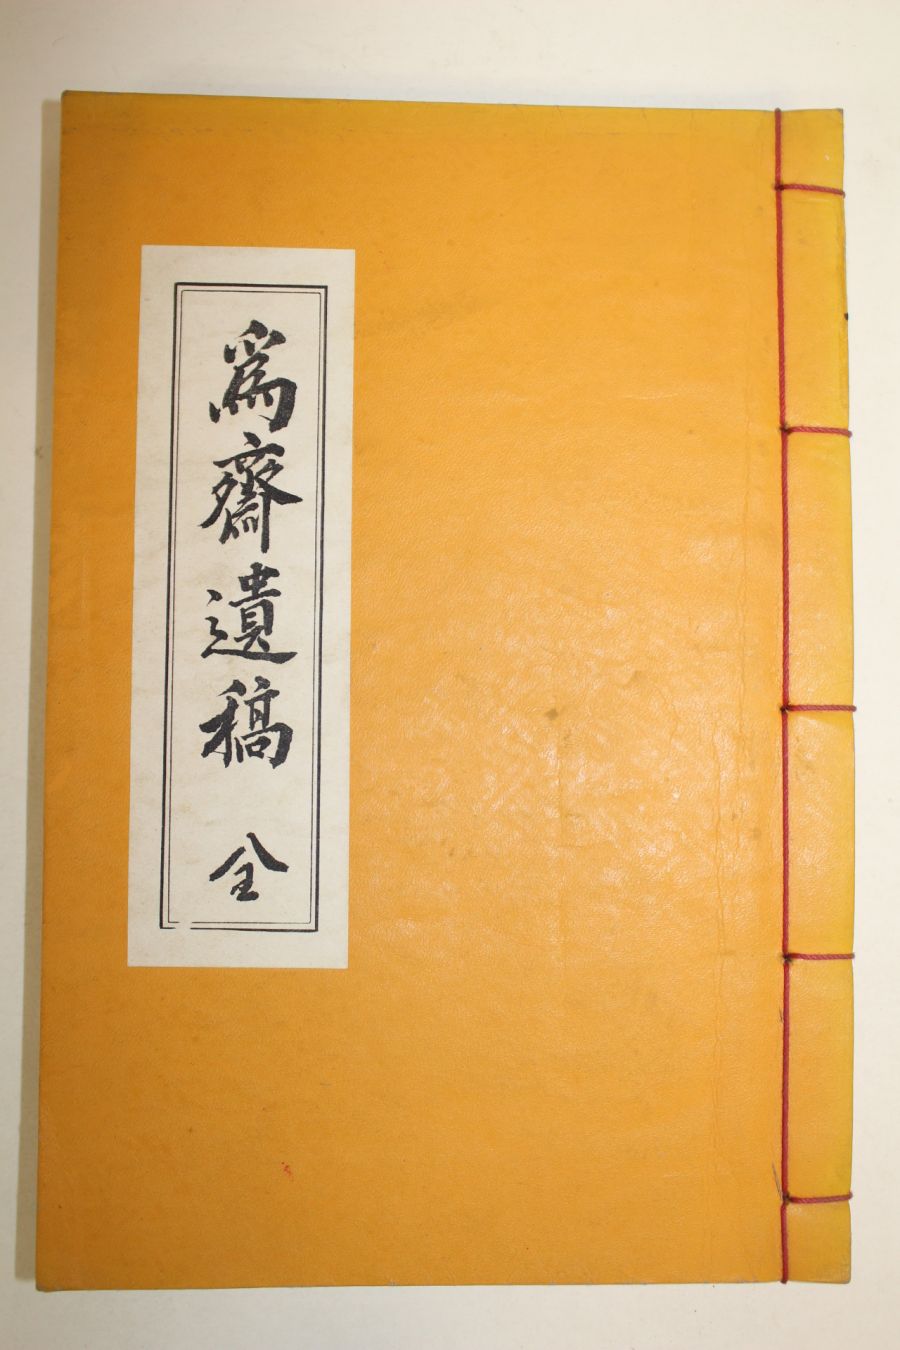 爲齋遺稿 全